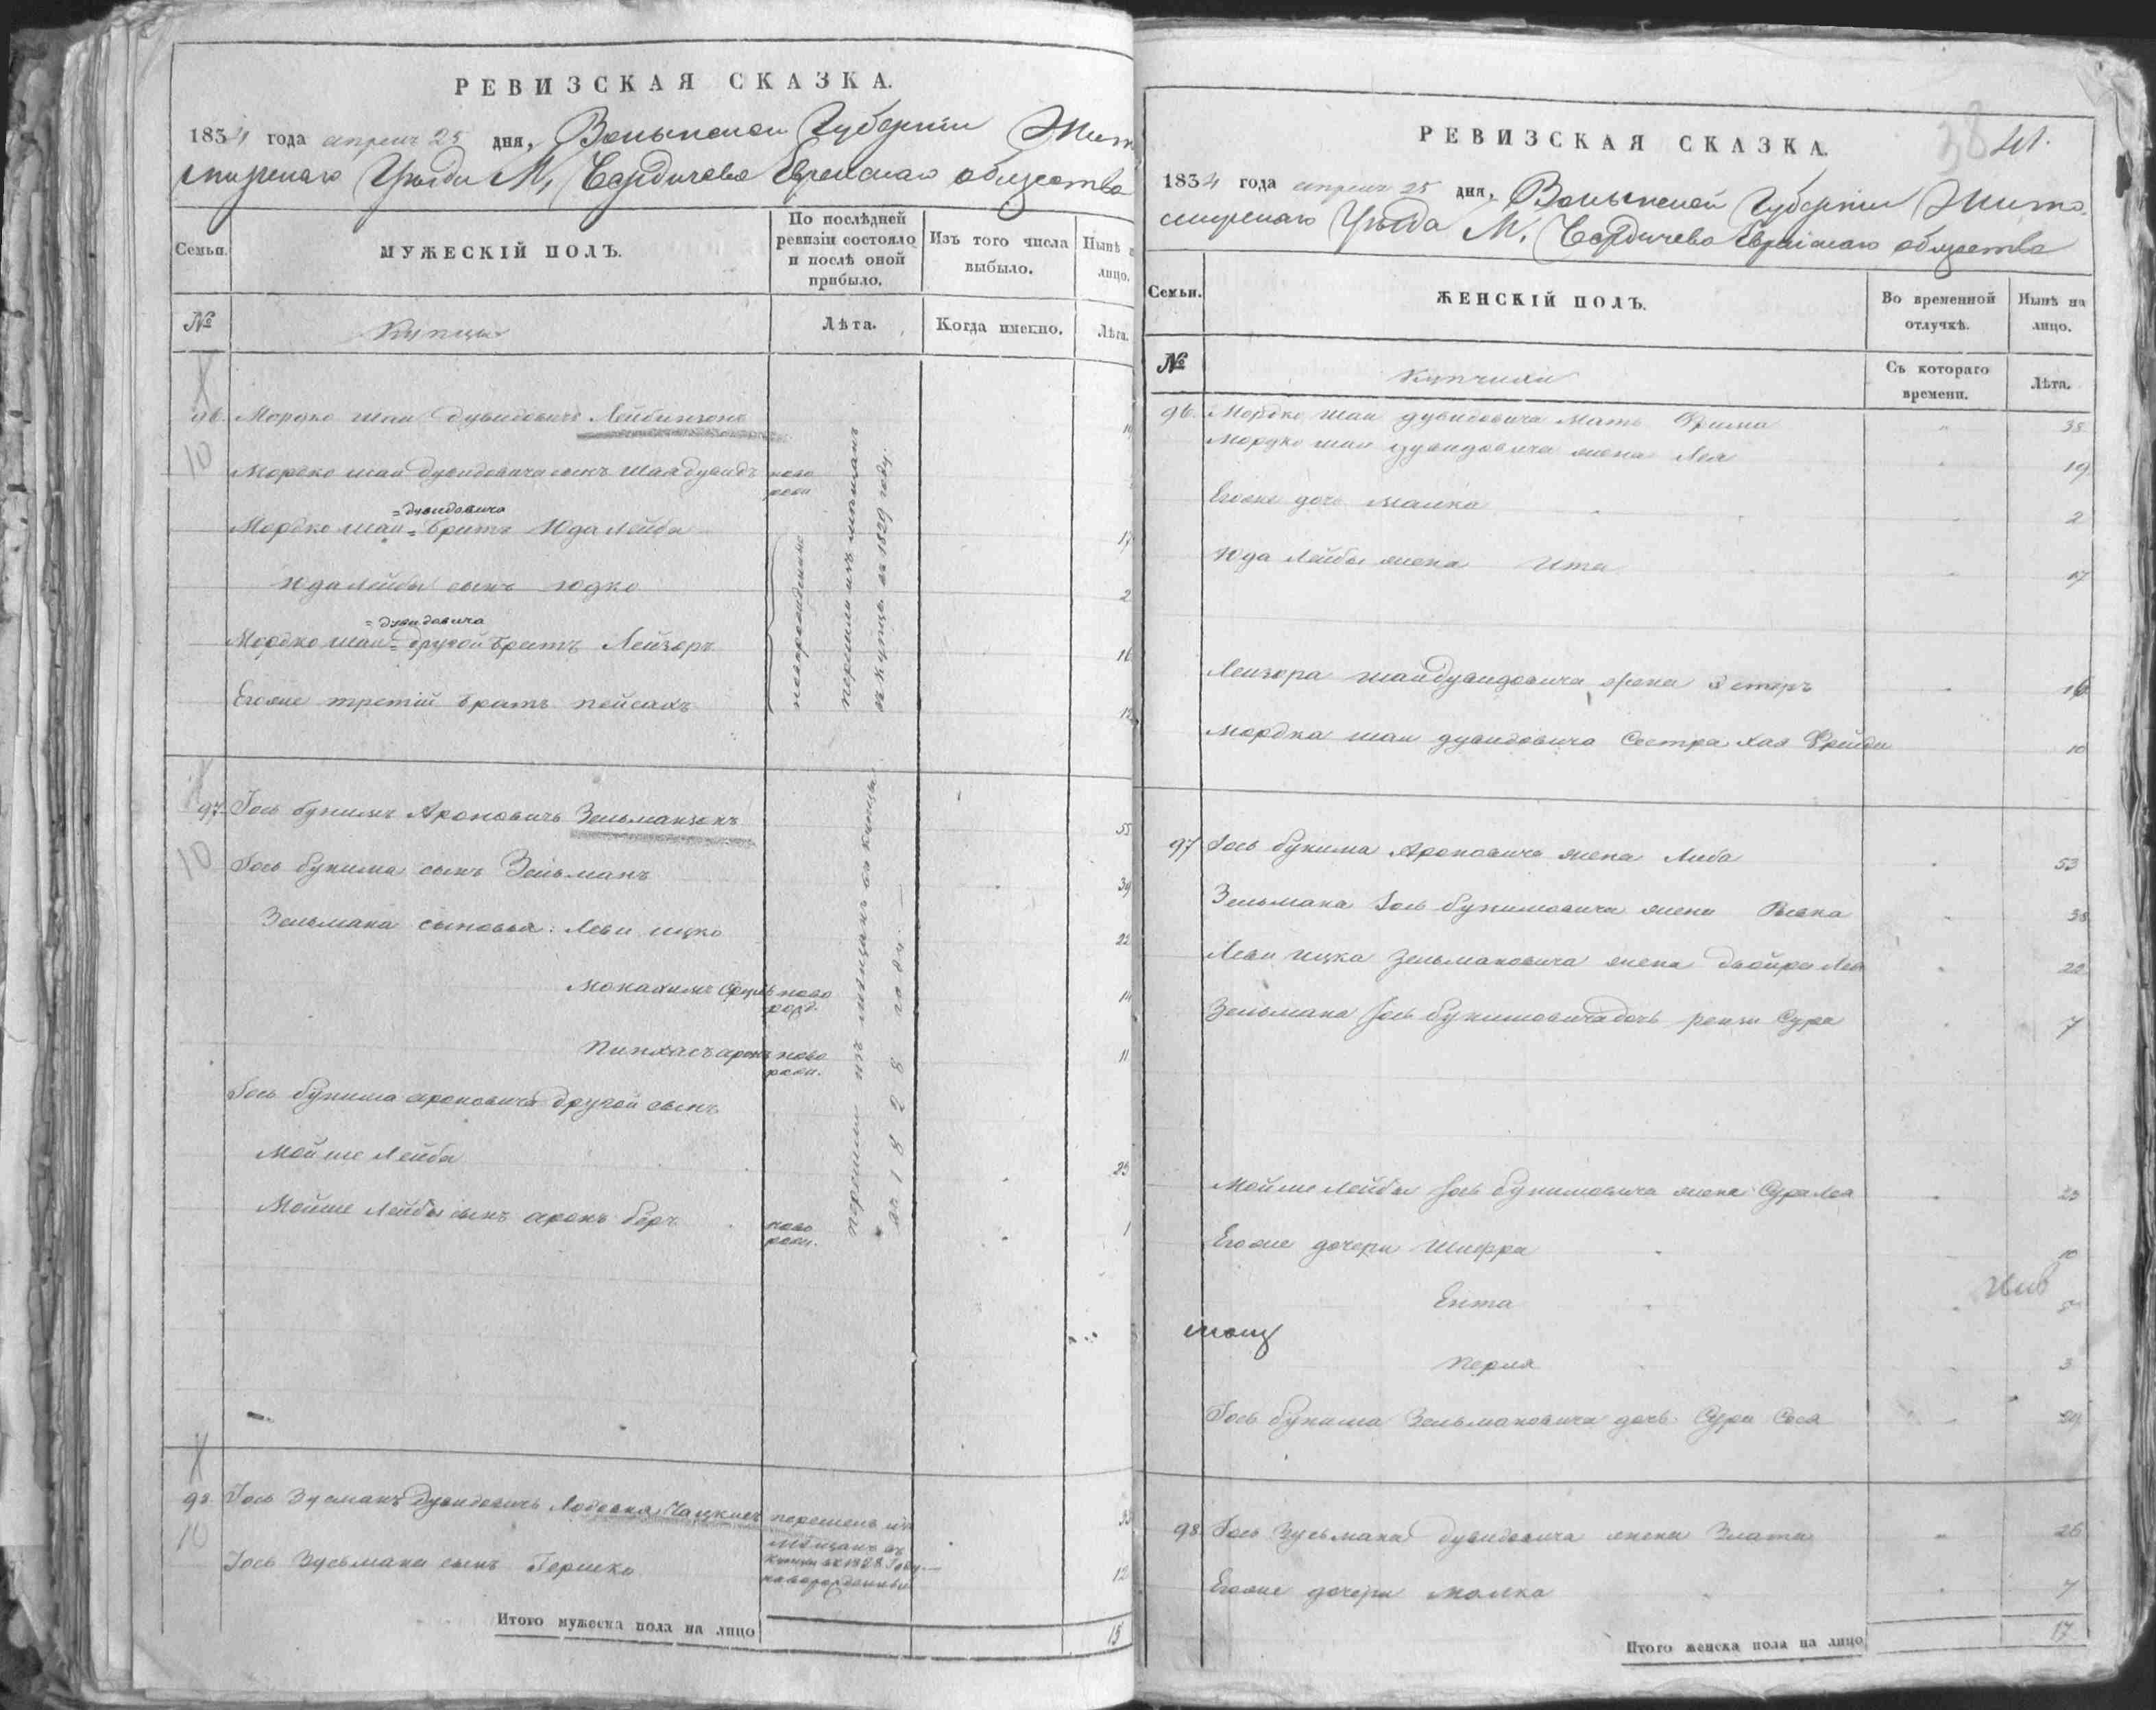 РЕВИЗСКАЯ СКАЗКА.
1834 года апреля 25 дня, Волынской Губернии Жито
мирскаго Уезда М, Бердичева Еврейскаго общества
Семьи.
МУЖЕСКІЙ ПОЛЪ.
По послѣдней ревизіи состояло и послѣ оной прибыло.
Изъ того числа выбыло.
Нынѣ
лицо.
№
Купцы
Лѣта.
Когда имянно.
Лѣта.
96. Мордко Шаи Дувидовичь Лейбинзонъ
10
Мордко Шаи Дувидовича сынъ Шая Дувидъ ново
рожд
= Дувидовича
Мордко Шаи = братъ Юда Лейба 17
Юда Лейбы сынъ Юдко 2
= Дувидовича
Мордко Шаи = другой братъ Лейзоръ 16
Егоже третій братъ Пейсахъ 12
новорожденные
перешли изъ мѣщанъ
въ купцы въ 1829 году.
97 Іось Бунимъ Ароновичь Зельманзонъ 55
10
Іось Бунима сынъ Зельманъ 39
Зельмана сыновья: Леви Ицко 22
Монахимъ ново 14
рожд.
Пинхасъ Аронъ ново 11
рожд.
Іось Бунима Ароновича другой сынъ
Мойше Лейба 25
Мойше Лейбы сынъ Аронъ Беръ ново 1
рожд.
перешли изъ мѣщанъ въ купцы
въ 1828 году.
98. Іось Зусманъ Дувидовичь перешелъ изъ 33
10
мѣщанъ въ
купцы въ 1828 году.
Іось Зусьмана сынъ Гершко новорожденный 12
Итого мужеска пола на лицо 15
38 41.
РЕВИЗСКАЯ СКАЗКА.
1834 года апреля 25 дня, Волынской Губерніи Жито
мирскаго Уезда М. Бердичева Еврейскаго общества
Семьи.
ЖЕНСКІЙ ПОЛЪ.
Во временной отлучкѣ.
Нынѣ на лицо.
№
Купчихи
Съ котораго времени.
Лѣта.
96. Мордко Шаи Дувидовича мать Фрима 38
Мордко Шаи Дувидовича жена Лея 19
Егоже дочь Малка 2
Юда Лейбы жена Ита 17
Лейзора Шаи Дувидовича жена Эстеръ 16
Мордка Шаи Дувидовича сестра Хая Фрейда 10
97 Іось Бунима Ароновича жена Либа 53
Зельмана Іось Бунимовича жена Ривка 38
Леви Ицка Зельмановича жена Двойра Лея 22
Зельмана Іось Бунимовича дочь Рейзи Сура 7
Мойше Лейбы Іось Бунимовича жена Сура Лея 25
Егоже дочери Шифра 10
Ента
Перля 3
Іось Бунима Зельмановича дочь Сура Сося
98. Іось Зусьмана Дувидовича жена Злата 26
Егоже дочери Малка 7
Итого женска пола на лицо 17